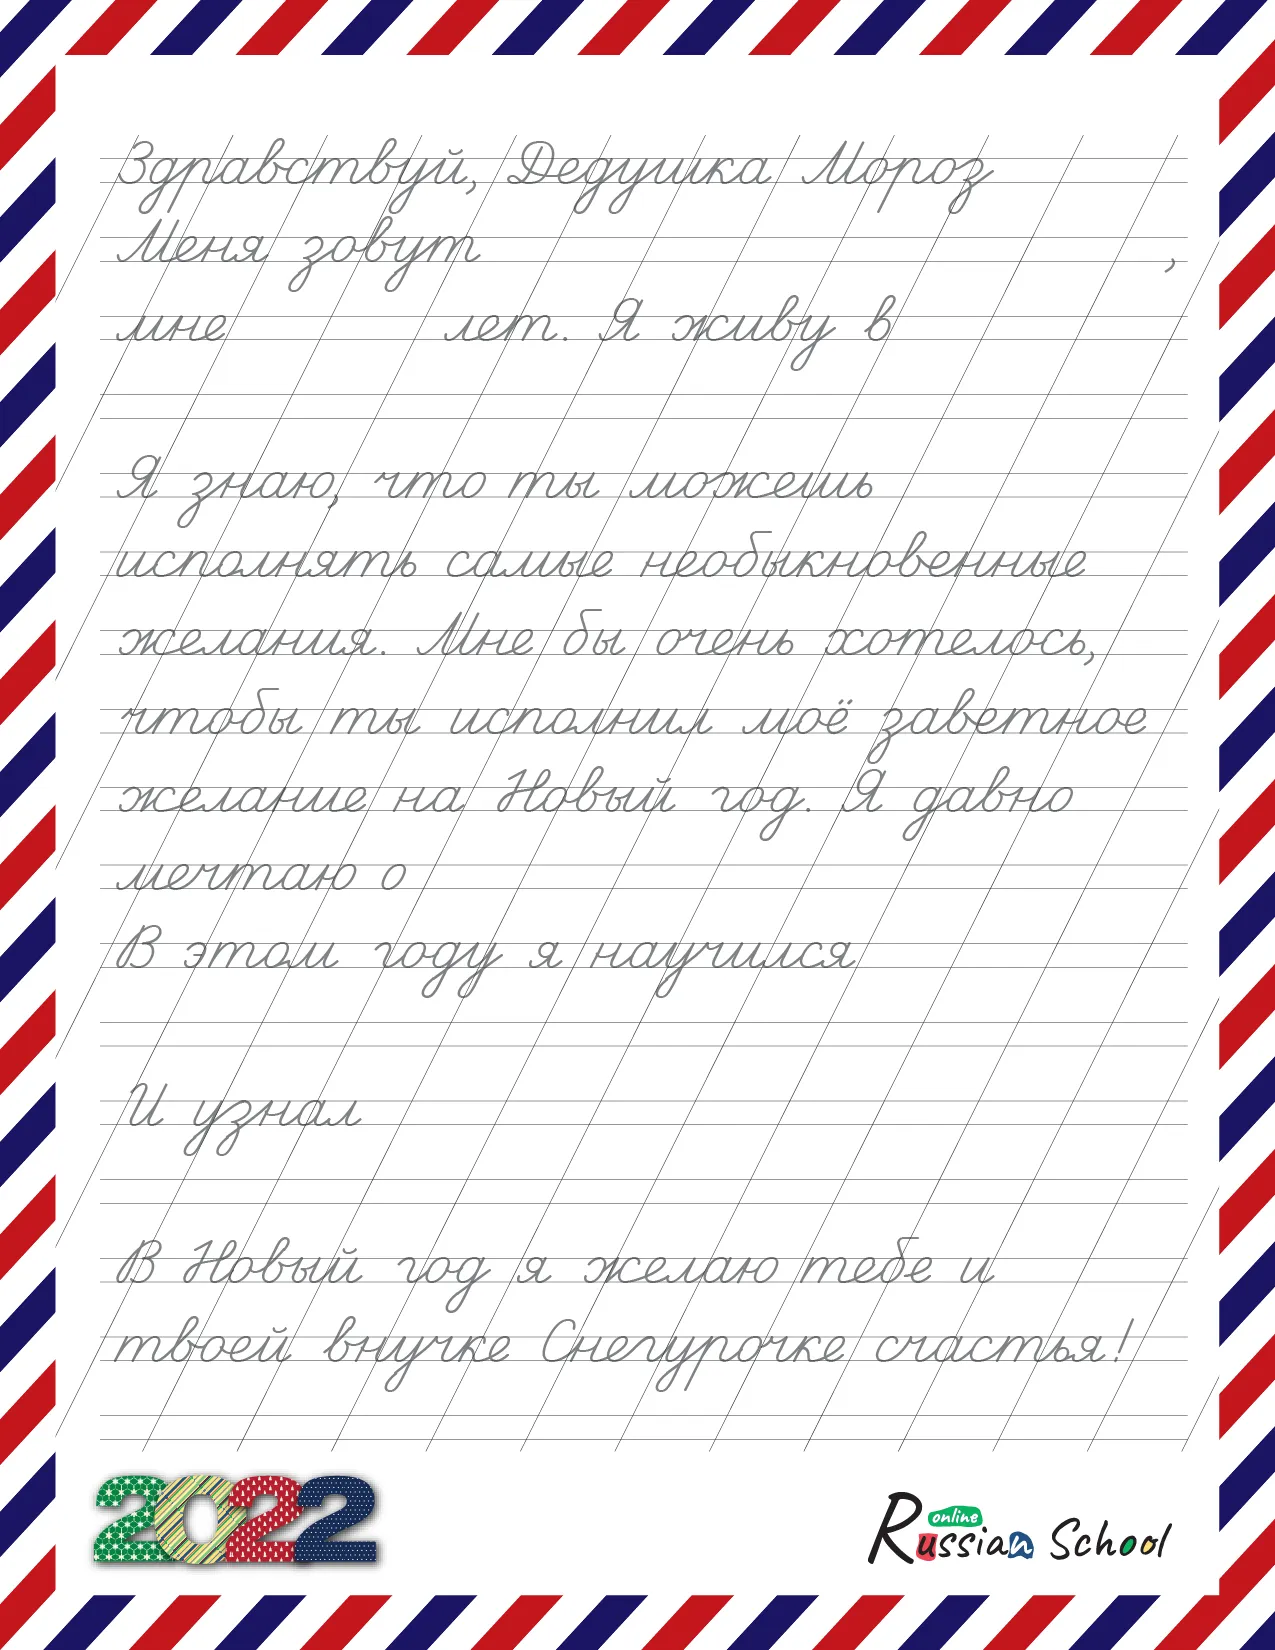 Здравствуй, Дедушка Мороз
Меня зовут ,
мне лет. Я живу в
Я знаю, что ты можешь
исполнять самые необыкновенные
желания. Мне бы очень хотелось,
чтобы ты исполнил моё заветное
желание на Новый год. Я давно
мечтаю о
В этом году я научился
И узнал
В Новый год я желаю тебе и
твоей внучке Снегурочке счастья!
2022
online
Russian School